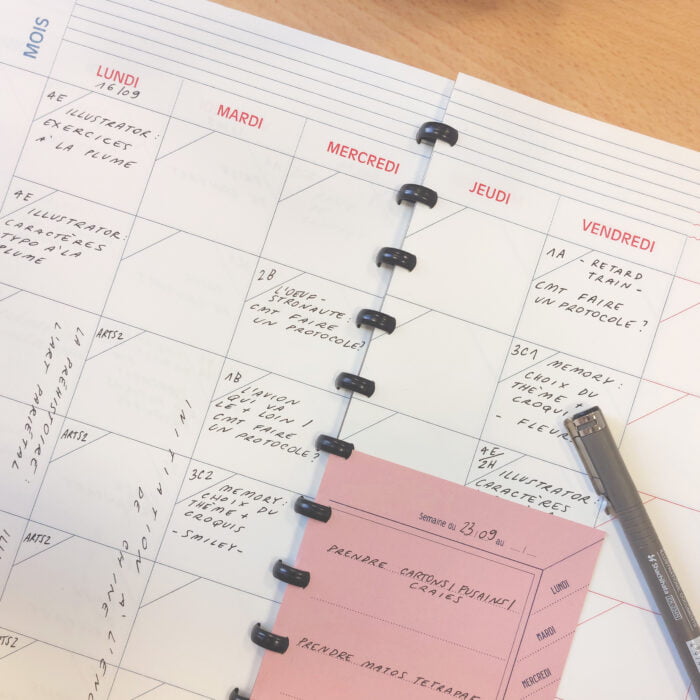 MOIS
LUNDI
16/09
MARDI
MERCREDI
JEUDI
VENDREDI
4E
ILLUSTRATOR:
EXERCICES
À LA PLUME
4E
ILLUSTRATOR:
CARACTÈRES
TYPO À LA
PLUME
LA PRÉHISTOIRE:
L'ART PARIÉTAL
ARTS2
ARTS2
ARTS2
INITIATION À L'ENC
DE CHINE
2B
L'OEUF-
STRONAUTE:
CMT FAIRE
UN PROTOCOLE?
1B
L'AVION
QUI VA
LE + LOIN /
CMT FAIRE
UN PROTOCOLE?
3C2
MEMORY:
CHOIX DU
THÈME +
CROQUIS
-SMILEY-
1A
- RETARD
TRAIN -
CMT FAIRE
UN PROTOCOLE?
3C1
MEMORY:
CHOIX DU
THÈME +
CROQUIS
- FLEUR
4E
2H
ILLUSTRATOR:
CARACTÈRES
Semaine du 23.09 au
PRENDRE CARTONS/FUSAINS/
CRAIES
PRENDRE MATOS TETRAPAE
LUNDI
MARDI
MERCREDI
Shachihata